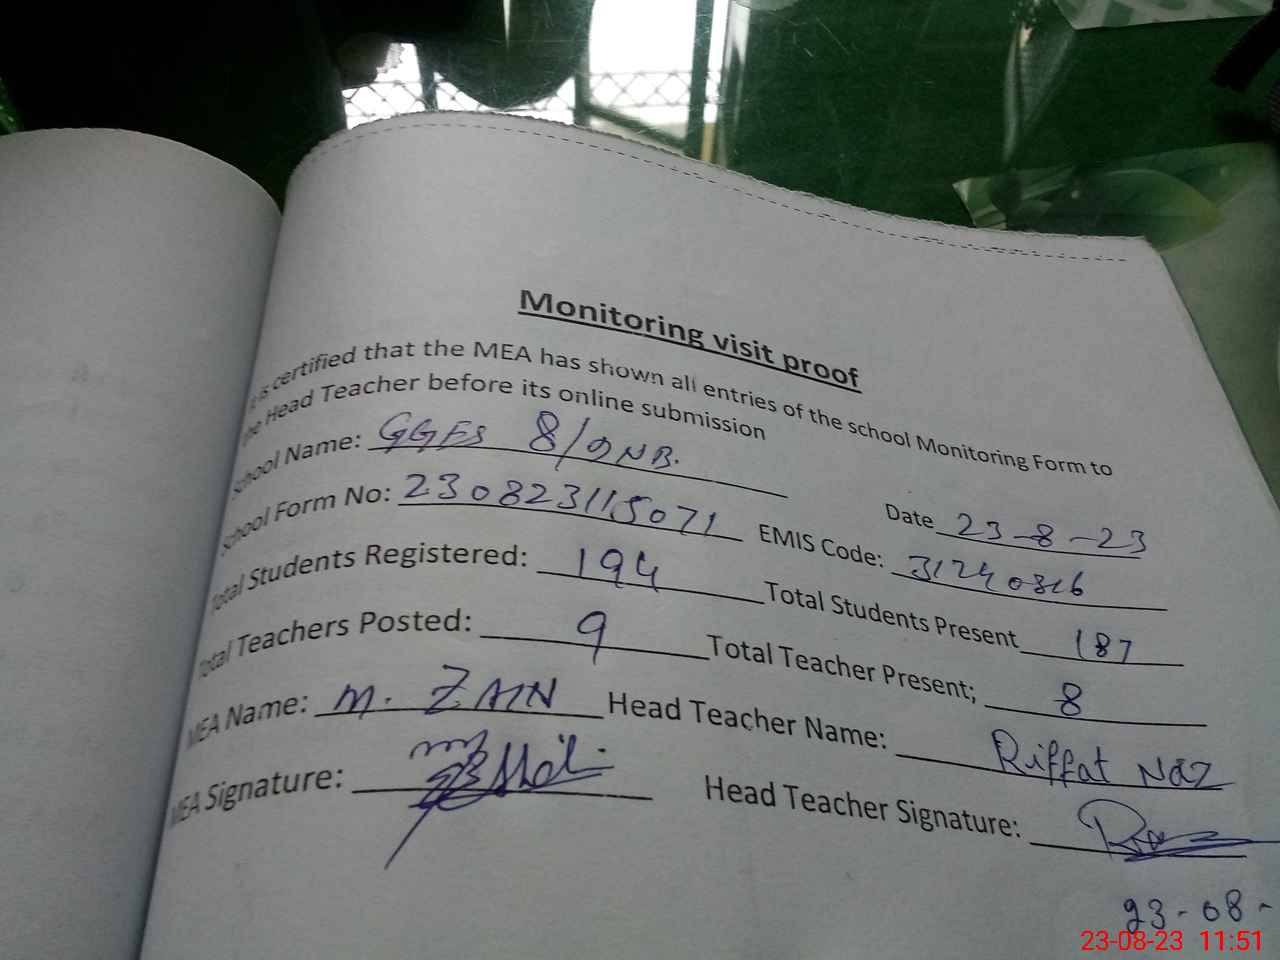 Monitoring visit proof
It is certified that the MEA has shown all entries of the school Monitoring Form to
the Head Teacher before its online submission
School Name: GGES 8/DNB.
Date 23-8-23
School Form No: 230823115071 EMIS Code: 31240816
Total Students Registered: 194 Total Students Present 187
Total Teachers Posted: 9 Total Teacher Present; 8
MEA Name: M. ZAIN Head Teacher Name: Riffat Naz
MEA Signature: Head Teacher Signature:
23-08-
23-08-23 11:51